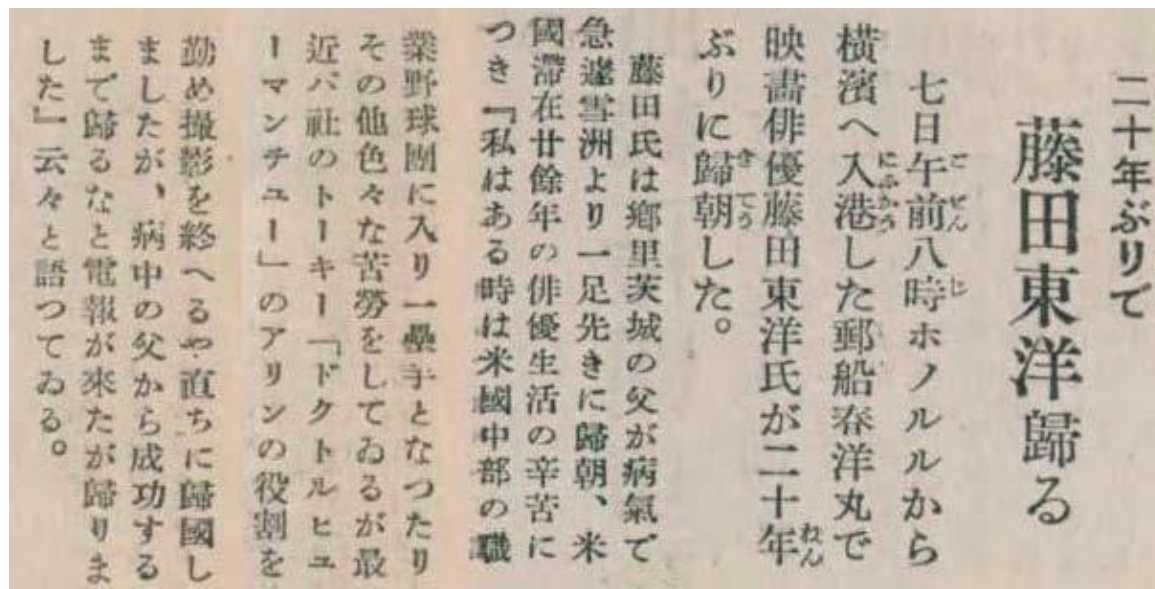 二十年ぶりで
藤田東洋歸る
七日午前八時ホノルルから
横濱へ入港した郵船春洋丸で
映畵俳優藤田東洋氏が二十年
ぶりに歸朝した。
藤田氏は鄕里茨城の父が病氣で
急遽雪洲より一足先きに歸朝、米
國滯在廿餘年の俳優生活の辛苦に
つき『私はある時は米國中部の職
業野球團に入り一壘手となつたり
その他色々な苦勞をしてゐるが最
近パ社のトーキー「ドクトルヒユ
ーマンチユー」のアリンの役割を
勤め撮影を終へるや直ちに歸國し
ましたが、病中の父から成功する
まで歸るなと電報が來たが歸りま
した」云々と語つてゐる。